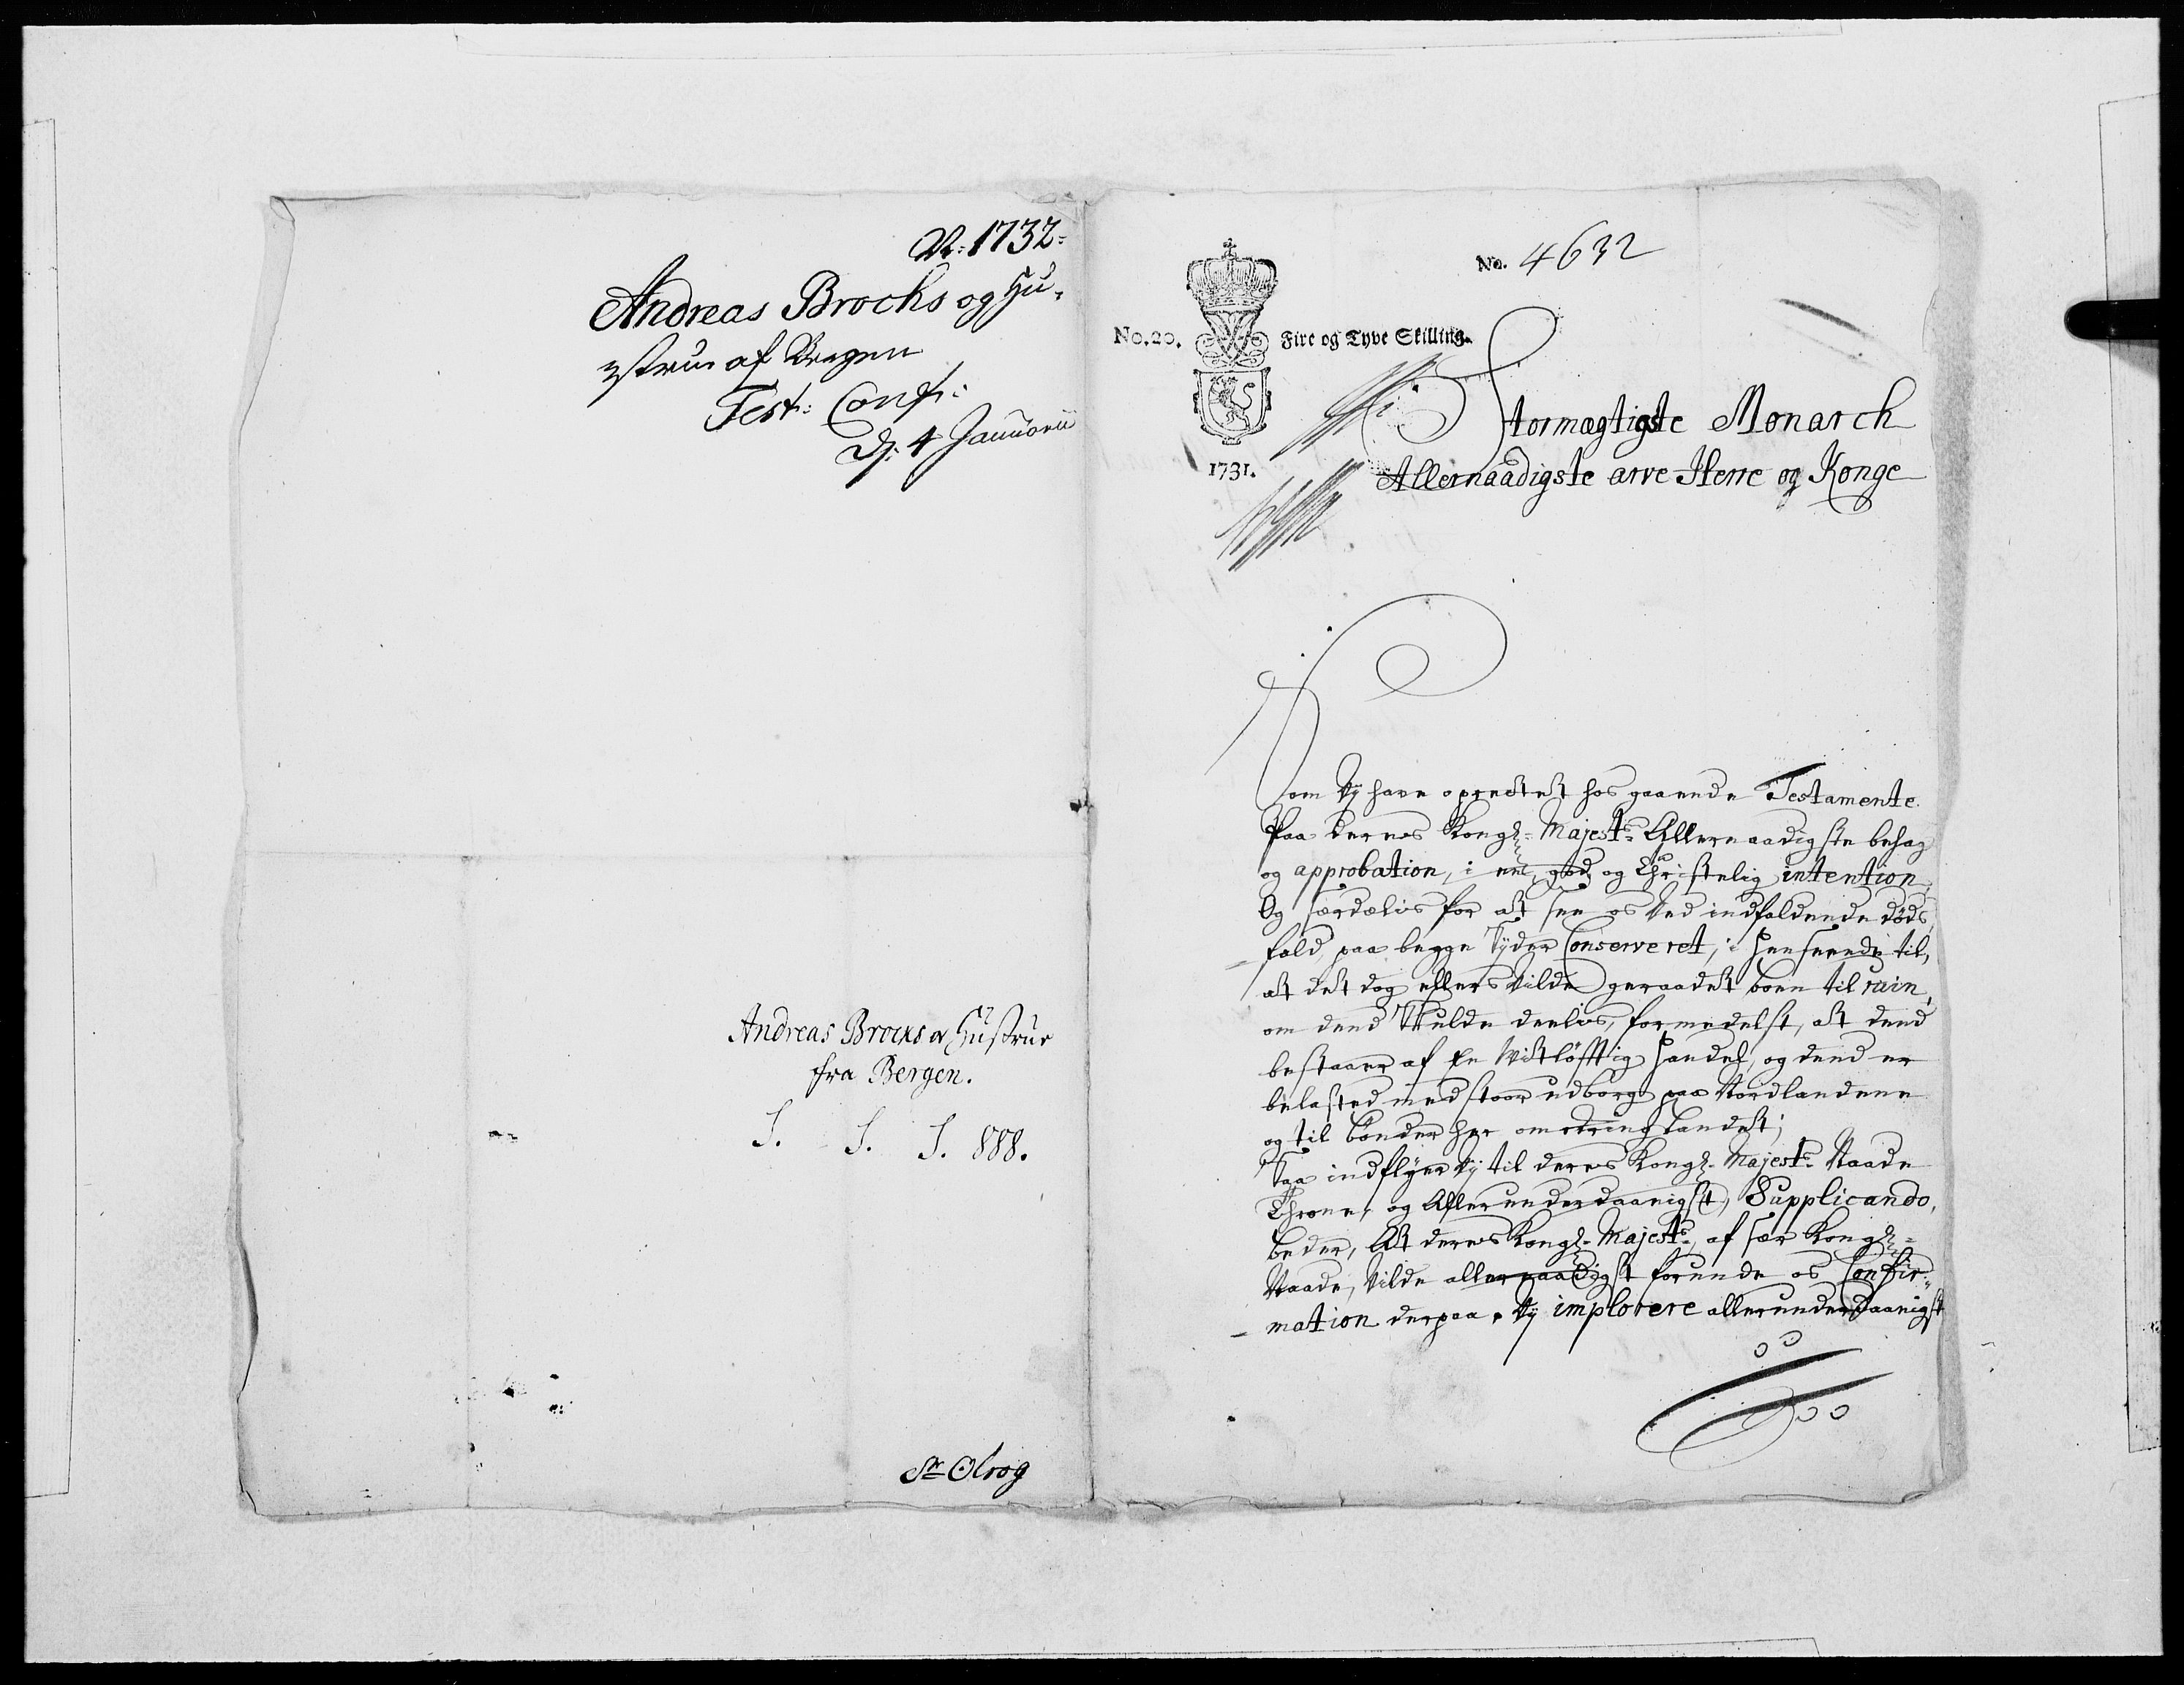 1732
Andreas Brocks og Hu-
strue af Bergen
Test: Conf:
D: 4 Januarii
Andreas Brocks og Hustrue
fra Bergen.
S. S. S. 888.
Sr Olrog
No. 4632
No. 20. Fire og Tyve Skilling.
1731.
Stormægtigste Monarch
Allernaadigste arve Herre og Konge
Som Vy have oprettet hos gaaende Testamente
Paa deres Kongl: Majests Allernaadigste behag
og approbation, i en god og Christelig intention,
Og særdælis for at see os ved indfaldende døds
fald, paa begge Syder Conserveret, i henseende til,
at det dog ellers vilde geraadet boen til ruin,
om dend skulde deelis, formedelst, at dend
bestaaer af en vitløfftig handel, og dend er
belasted med stoor udborg paa Nordlandene
og til bønder her omkring Landet;
Saa indflyer Vy til deres Kongl: Majests Naade
Throne, og Allerunderdaanigst, Supplicando,
beder, At deres Kongl: Majests, af sær Kongl:
Naade, Vilde allernaadigst forunde os Confir-
mation derpaa. Vy implorere allerunderdaanigst